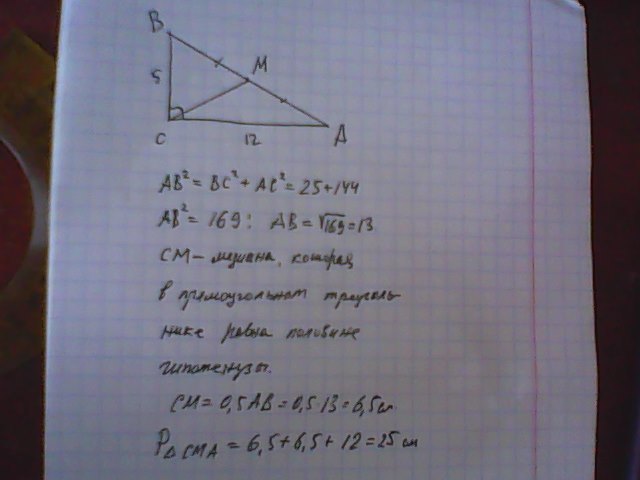 B
5
M
C
12
A
AB² = BC² + AC² = 25 + 144
AB² = 169; AB = √169 = 13
CM – медиана, которая
в прямоугольном треуголь
нике равна половине
гипотенузы.
CM = 0,5AB = 0,5·13 = 6,5 см
P△CMA = 6,5 + 6,5 + 12 = 25 см